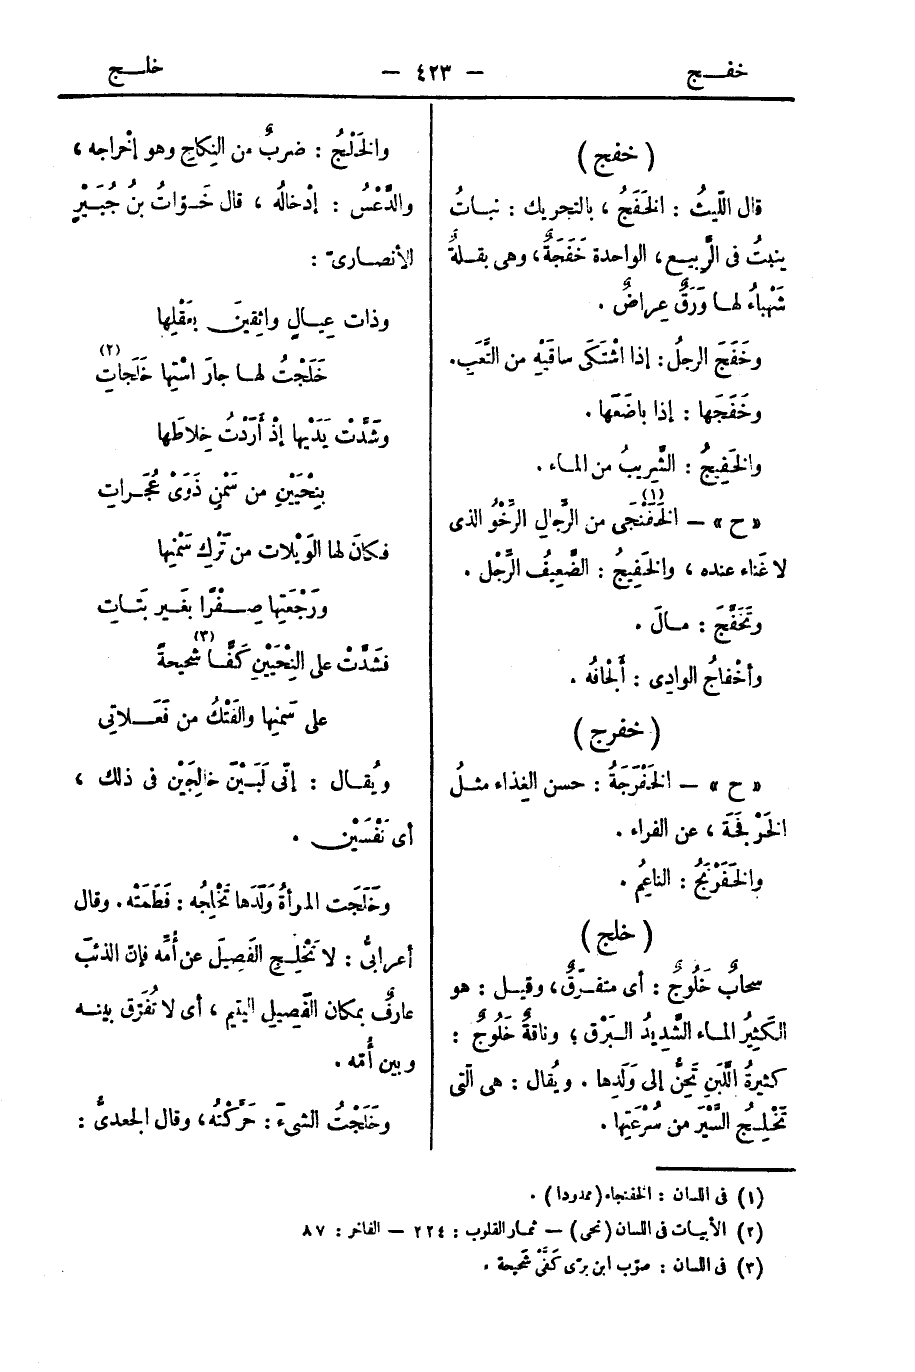 خفج
— ٤٢٣ —
خلج
( خفج )
قال اللّيثُ : الخَفَجُ ، بالتحريك : نباتُ
ينبتُ فى الرَّبيع ، الواحدة خَفَجَةٌ ، وهى بقلةٌ
شَهْباءُ لها وَرَقٌ عِراضٌ .
وخَفَجَ الرجلُ : إذا اشْتَكَى ساقَيْهِ من التَّعَبِ .
وخَفَجَها : إذا باضَعَها .
والخَفِيجُ : الشَّرِيبُ من الماء .
« ح » — الخَفَنْجَى (١) من الرَّجالِ الرَّخْوُ الذى
لا غَناء عنده ، والخَفِيجُ : الضَّعِيفُ الرَّجْل .
وتَخَفَّجَ : مـالَ .
وأخْفاجُ الوادِى : أَلْجافُه .
( خفرج )
« ح » — الخَفْرَجَةُ : حسن الغِذاء مثـلُ
الخَرْفَجَة ، عن الفراء .
والخَفَرْنَجُ : الناعِمُ .
( خلج )
سحابٌ خَلُوجٌ : أى متفـرّقٌ ، وقيـل : هو
الكَثِيرُ المـاء الشَّدِيدُ الـبَرْق ؛ وناقةٌ خَلُوجٌ :
كثيرةُ اللَّبَنِ تَحِنُّ إلى وَلَدِها . ويُقال : هى الّتى
تَخْلِـجُ السَّيْرَ من سُرْعَتِها .
والخَلْجُ : ضربٌ من النِكاحِ وهو إخْراجه ،
والدَّعْسُ : إدْخالُه ، قال خَـوّاتُ بنُ جُبَيْرٍ
الأنصـارىّ :
وذات عِيـالٍ واثِقِينَ بعَقْلِها
خَلَجْتُ لهـا جارَ اسْتِها خَلَجاتِ (٢)
وشَدَّتْ يَدَيْها إذْ أَرَدْتُ خِلاطَها
بِنِحْيَيْنِ من سَمْنٍ ذَوَىْ عُجَـراتِ
فـكانَ لها الوَيْلات من تَرْكِ سَمْنِها
ورَجْعَتِها صِـفْرًا بغَـيرِ بَتَـاتِ
فشَدَّتْ على النِحْيَيْنِ كَفًّـا (٣) شَحِيحَةً
على سَمْنِها والفَتْكُ من فَعَـلاتِى
ويُقـال : إنّى لَبَـيْنَ خالِجَيْنِ فى ذلك ،
أى نَفْسَيْنِ .
وخَلَجَت المـرأةُ وَلَدَها تَخْلِجُه : فَطَمَتْه . وقال
أعرابىٌّ : لا تَخْلِـجِ الفَصِيلَ عن أُمِّه فإنّ الذئبَ
عارِفٌ بمكان الفَصِيلِ اليتيم ، أى لا تُفَرِّق بينـه
وبين أُمّه .
وخَلَجْتُ الشىءَ : حَرَّكْتُه ، وقال الجعدىُّ :
(١) فى اللسان : الخفنجاء (ممدودا) .
(٢) الأبيات فى اللسان (نحى) — ثمـار القلوب : ٢٢٤ — الفاخر : ٨٧
(٣) فى اللسان : صوّب ابن برى كَفَّىْ شَحيحة .